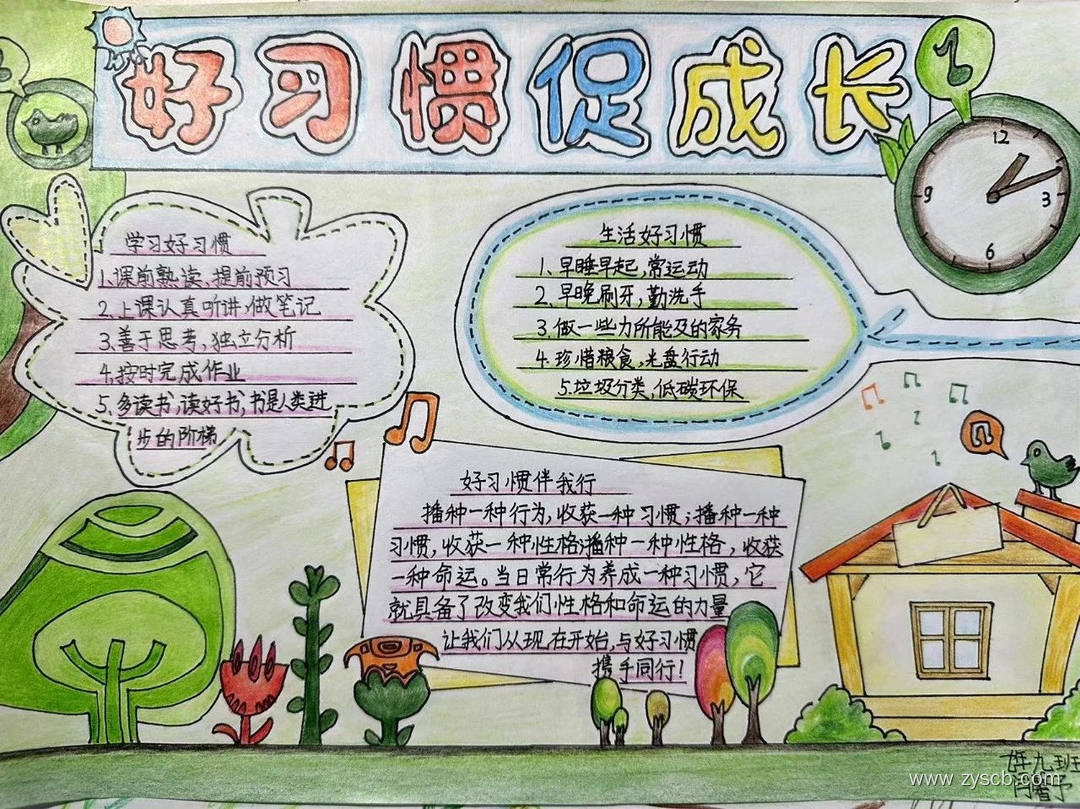 好习惯促成长
12
3
6
9
学习好习惯
1.课前熟读、提前预习
2.上课认真听讲,做笔记
3.善于思考,独立分析
4.按时完成作业
5.多读书,读好书,书是人类进
步的阶梯
生活好习惯
1.早睡早起,常运动
2.早晚刷牙,勤洗手
3.做一些力所能及的家务
4.珍惜粮食,光盘行动
5.垃圾分类,低碳环保
好习惯伴我行
播种一种行为,收获一种习惯;播种一种
习惯,收获一种性格;播种一种性格,收获
一种命运。当日常行为养成一种习惯,它
就具备了改变我们性格和命运的力量
让我们从现在开始,与好习惯
携手同行!
九班
www.zyscb.com